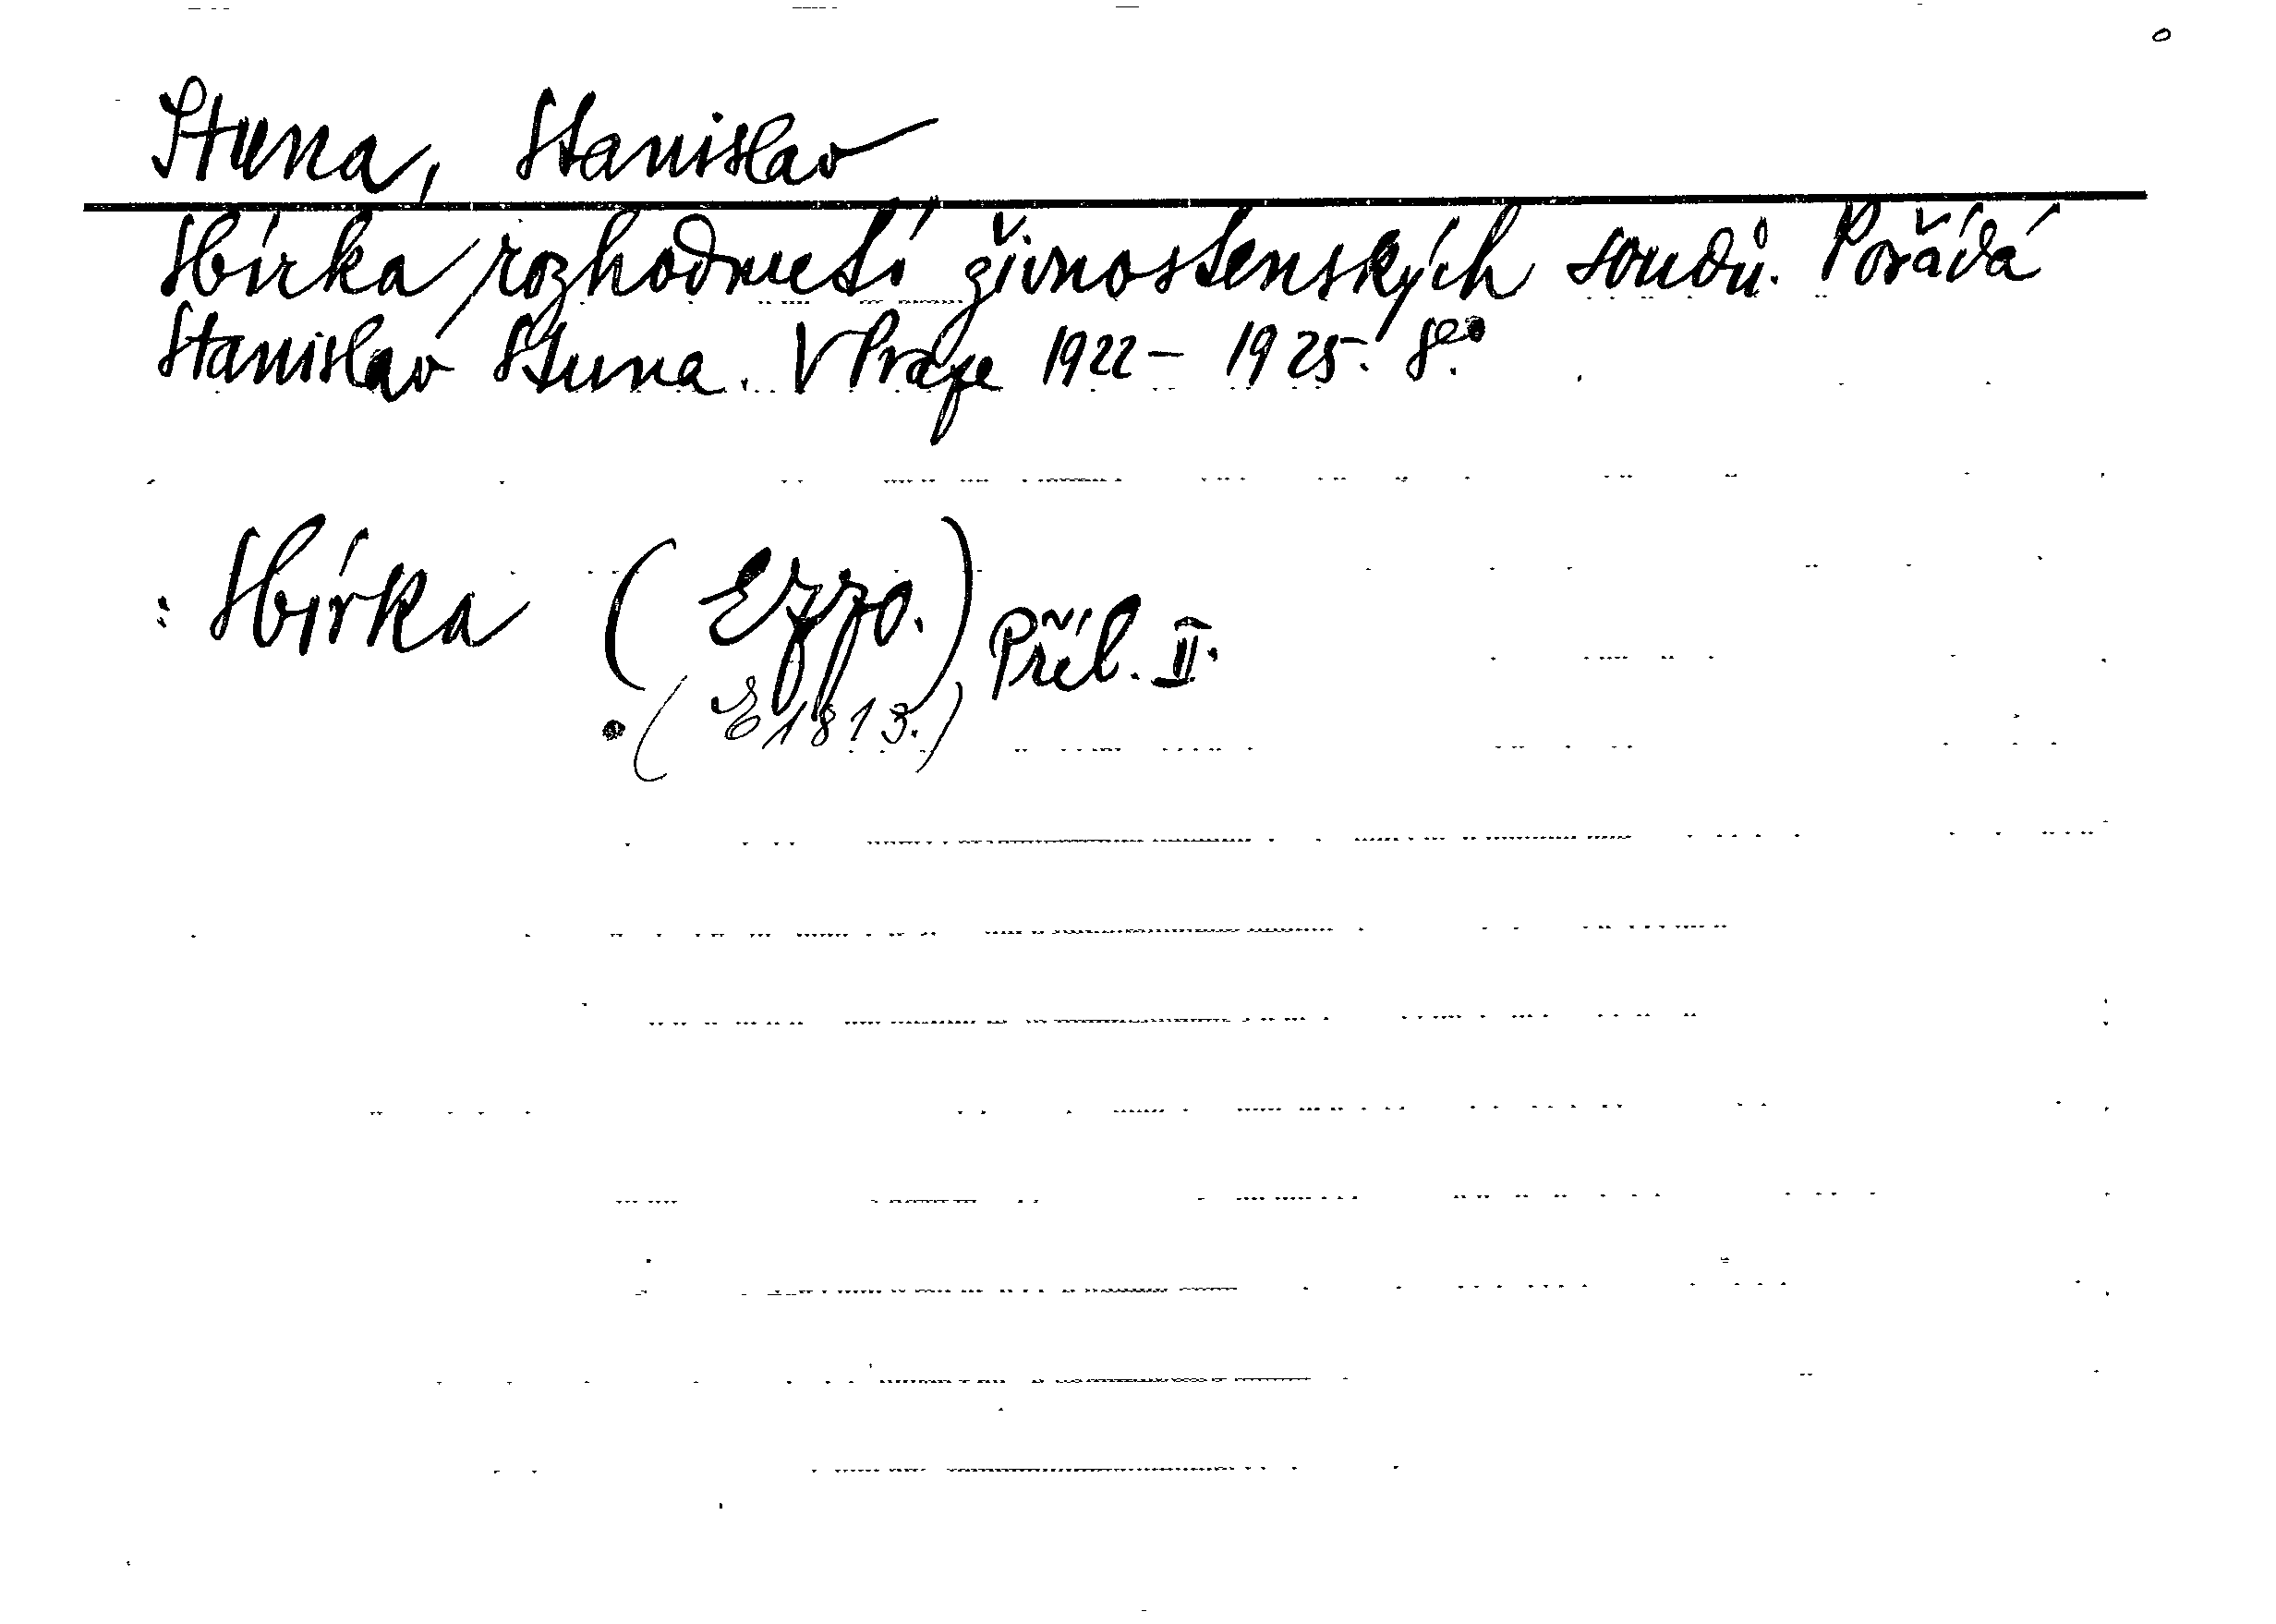 Stuna, Stanislav
Sbírka rozhodnutí živnostenských soudů. Pořádá
Stanislav Stuna. V Praze 1922 – 1925. 8°.
: Sbírka (Ezzo.) Příl. II.
(E 1813.)